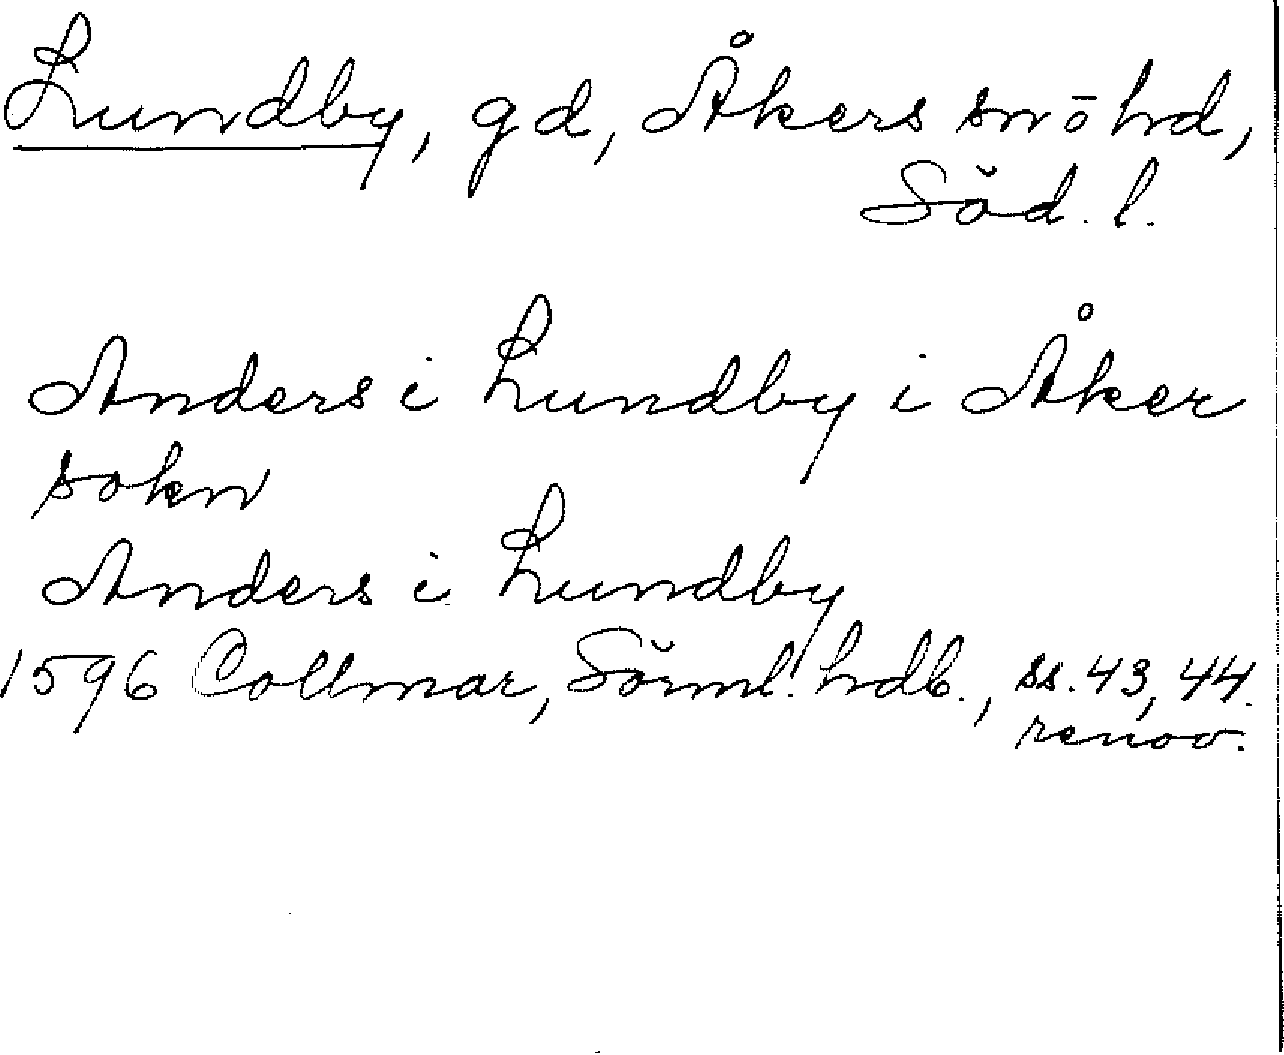 Lundby, gd, Åkers sn o hd,
Söd. l.
Anders i Lundby i Åker
sokn
Anders i Lundby
1596 Collmar, Sörml. hdb., ss. 43, 44.
renov.